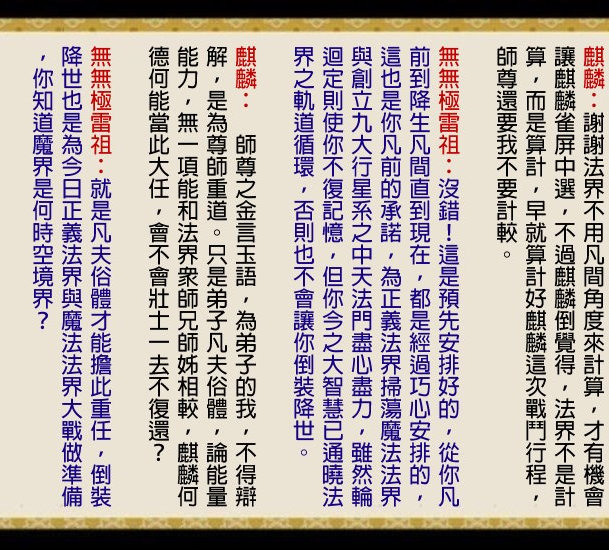 麒麟：謝謝法界不用凡間角度來計算，才有機會
讓麒麟雀屏中選，不過麒麟倒覺得，法界不是計
算，而是算計，早就算計好麒麟這次戰鬥行程，
師尊還要我不要計較。
無無極雷祖：沒錯！這是預先安排好的，從你凡
前到降生凡間直到現在，都是經過巧心安排的，
這也是你凡前的承諾，為正義法界掃蕩魔法法界
與創立九大行星系之中天法門盡心盡力，雖然輪
迴定則使你不復記憶，但你今之大智慧已通曉法
界之軌道循環，否則也不會讓你倒裝降世。
麒麟：　師尊之金言玉語，為弟子的我，不得辯
解，是為尊師重道。只是弟子凡夫俗體，論能量
能力，無一項能和法界眾師兄師姊相較，麒麟何
德何能當此大任，會不會壯士一去不復還？
無無極雷祖：就是凡夫俗體才能擔此重任，倒裝
降世也是為今日正義法界與魔法法界大戰做準備
，你知道魔界是何時空境界？